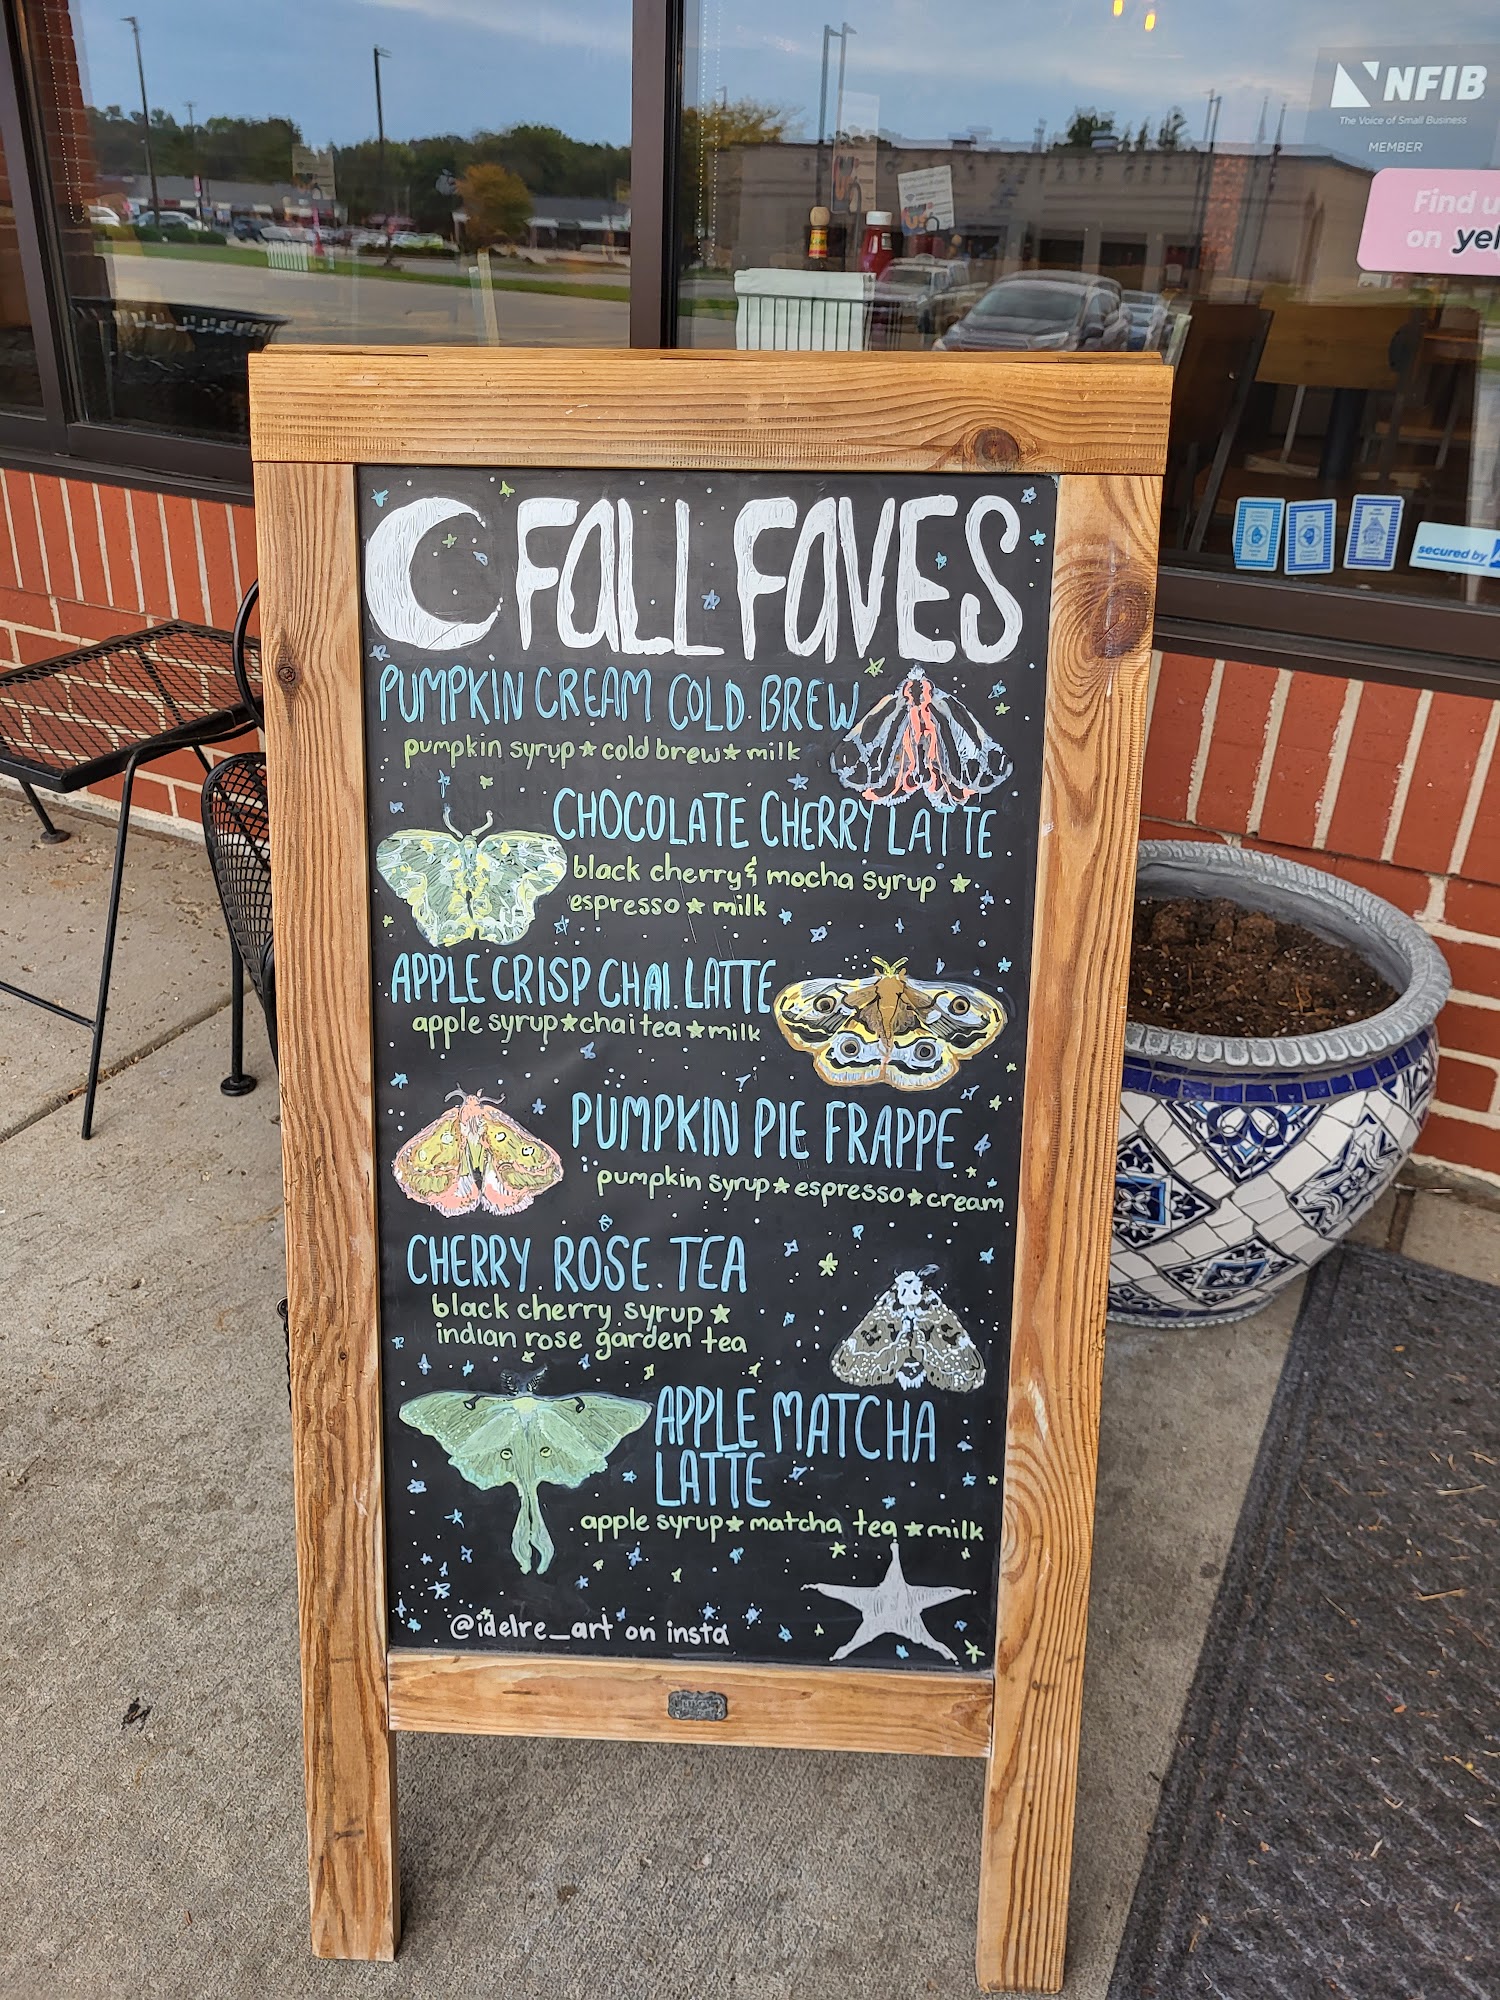 NFIB
The Voice of Small Business
MEMBER
Find
on
FALL FAVES
PUMPKIN CREAM COLD BREW
pumpkin syrup★cold brew★milk
CHOCOLATE CHERRY LATTE
black cherry & mocha syrup ★
espresso★milk
APPLE CRISP CHAI LATTE
apple syrup★chai tea★milk
PUMPKIN PIE FRAPPE
pumpkin syrup★espresso★cream
CHERRY ROSE TEA
black cherry syrup★
indian rose garden tea
APPLE MATCHA
LATTE
apple syrup★matcha tea★milk
@idelre_art on insta
secured by